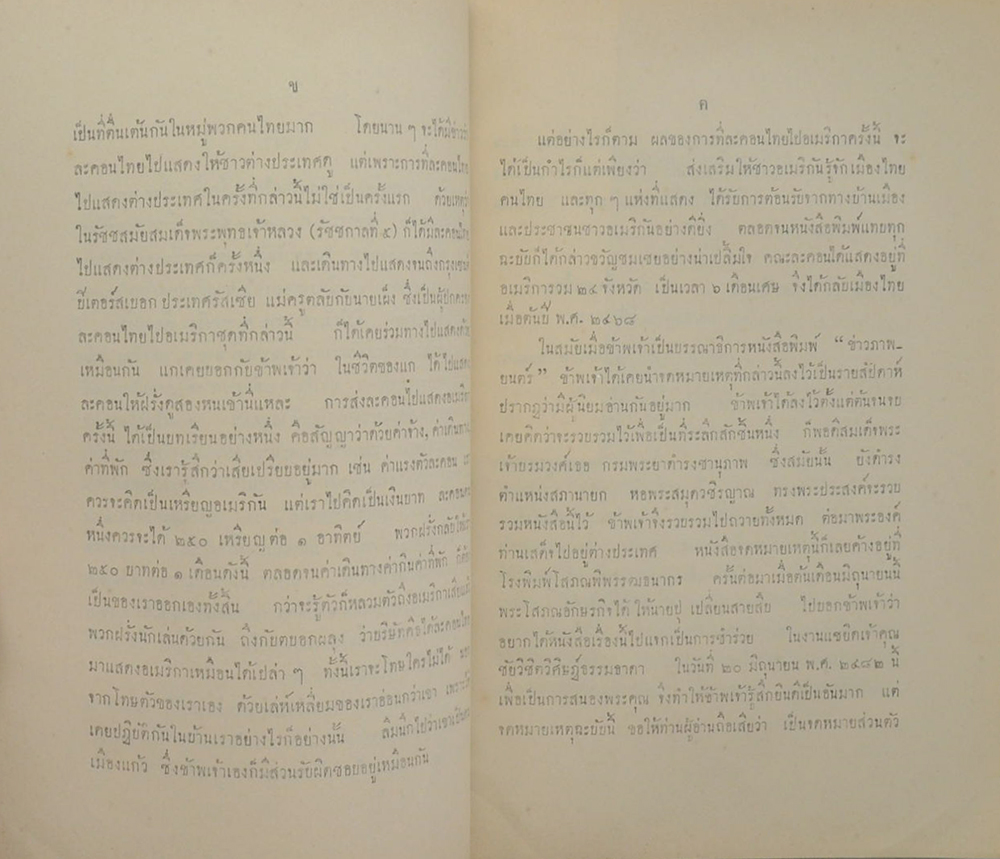 ข
เป็นที่ตื่นเต้นกันในหมู่พวกคนไทยมาก โดยนาน ๆ จะได้มี
ละคอนไทยไปแสดงให้ชาวต่างประเทศดู แต่เพราะการที่ละคอนไทย
ไปแสดงต่างประเทศในครั้งที่กล่าวนี้ไม่ใช่เป็นครั้งแรก ด้วยเหตุว่า
ในรัชชสมัยสมเด็จพระพุทธเจ้าหลวง (รัชชกาลที่ ๕) ก็ได้มีละคอนไทย
ไปแสดงต่างประเทศก็ครั้งหนึ่ง และเดินทางไปแสดงจนถึงกรุงเซนต์
ปีเตอร์สเบอก ประเทศรัสเซีย แม่ครูตลับกับนายเผ็ง ซึ่งเป็นผู้ปกครอง
ละคอนไทยไปอเมริกาชุดที่กล่าวนี้ ก็ได้เคยร่วมทางไปแสดงด้วย
เหมือนกัน แกเคยบอกกับข้าพเจ้าว่า ในชีวิตของแก ได้ไปแสดง
ละคอนให้ฝรั่งดูสองหนเข้านี่แหละ การส่งละคอนไปแสดงอเมริกา
ครั้งนี้ ได้เป็นบทเรียนอย่างหนึ่ง คือสัญญาว่าด้วยค่าจ้าง, ค่าเดินทาง
ค่าที่พัก ซึ่งเรารู้สึกว่าเสียเปรียบอยู่มาก เช่น ค่าแรงตัวละคอน เรา
ควรจะคิดเป็นเหรียญอเมริกัน แต่เราไปคิดเป็นเงินบาท ละคอนคน
หนึ่งควรจะได้ ๒๕๐ เหรียญต่อ ๑ อาทิตย์ พวกฝรั่งกลับให้เรา
๒๕๐ บาทต่อ ๑ เดือนดังนี้ ตลอดจนค่าเดินทางค่ากินค่าที่พัก ก็ต้อง
เป็นของเราออกเองทั้งสิ้น กว่าจะรู้ตัวก็หลวมตัวถึงอเมริกาเสียแล้ว
พวกฝรั่งนักเล่นด้วยกัน ถึงกับตบอกผลุง ว่าบริษัทคือได้ละคอนไทย
มาแสดงอเมริกาเหมือนได้เปล่า ๆ ทั้งนี้เราจะโทษใครไม่ได้ นอก
จากโทษตัวของเราเอง ด้วยเล่ห์เหลี่ยมของเราอ่อนกว่าเขา เพราะเรา
เคยปฏิบัติกันในบ้านเราอย่างไรก็อย่างนั้น ลืมนึกไปว่าเขาเป็น
เมืองแก้ว ซึ่งข้าพเจ้าเองก็มีส่วนรับผิดชอบอยู่เหมือนกัน
ค
แต่อย่างไรก็ตาม ผลของการที่ละคอนไทยไปอเมริกาครั้งนี้ จะ
ได้เป็นกำไรก็แต่เพียงว่า ส่งเสริมให้ชาวอเมริกันรู้จักเมืองไทย
คนไทย และทุก ๆ แห่งที่แสดง ได้รับการต้อนรับจากทางบ้านเมือง
และประชาชนชาวอเมริกันอย่างดียิ่ง ตลอดจนหนังสือพิมพ์แทบทุก
ฉะบับก็ได้กล่าวขวัญชมเชยอย่างน่าปลื้มใจ คณะละคอนได้แสดงอยู่ที่
อเมริการวม ๒๔ จังหวัด เป็นเวลา ๖ เดือนเศษ จึงได้กลับเมืองไทย
เมื่อต้นปี พ.ศ. ๒๔๖๘
ในสมัยเมื่อข้าพเจ้าเป็นบรรณาธิการหนังสือพิมพ์ “ ข่าวภาพ-
ยนตร์ ” ข้าพเจ้าได้เคยนำจดหมายเหตุที่กล่าวนี้ลงไว้เป็นรายสัปดาห์
ปรากฏว่ามีผู้นิยมอ่านกันอยู่มาก ข้าพเจ้าได้ลงไว้ตั้งแต่ต้นจนจบ
เคยคิดว่าจะรวบรวมไว้เพื่อเป็นที่ระลึกสักชิ้นหนึ่ง ก็พอดีสมเด็จพระ
เจ้าบรมวงศ์เธอ กรมพระยาดำรงราชานุภาพ ซึ่งสมัยนั้น ยังดำรง
ตำแหน่งสภานายก หอพระสมุดวชิรญาณ ทรงพระประสงค์จะรวบ
รวมหนังสือนี้ไว้ ข้าพเจ้าจึงรวบรวมไปถวายทั้งหมด ต่อมาพระองค์
ท่านเสด็จไปอยู่ต่างประเทศ หนังสือจดหมายเหตุนี้ก็เลยค้างอยู่ที่
โรงพิมพ์โสภณพิพรรฒธนากร ครั้นต่อมาเมื่อต้นเดือนมิถุนายนนี้
พระโสภณอักษรกิจได้ ให้นายปุ่ เปลี่ยนสายสืบ ไปบอกข้าพเจ้าว่า
อยากได้หนังสือเรื่องนี้ไปแจกเป็นการชำร่วย ในงานแซยิดเจ้าคุณ
ชัยวิชิตวิศิษฎ์ธรรมธาดา ในวันที่ ๒๐ มิถุนายน พ.ศ. ๒๔๘๒ นี้
เพื่อเป็นการสนองพระคุณ จึงทำให้ข้าพเจ้ารู้สึกยินดีเป็นอันมาก แต่
จดหมายเหตุฉะบับนี้ ขอให้ท่านผู้อ่านถือเสียว่า เป็นจดหมายส่วนตัว